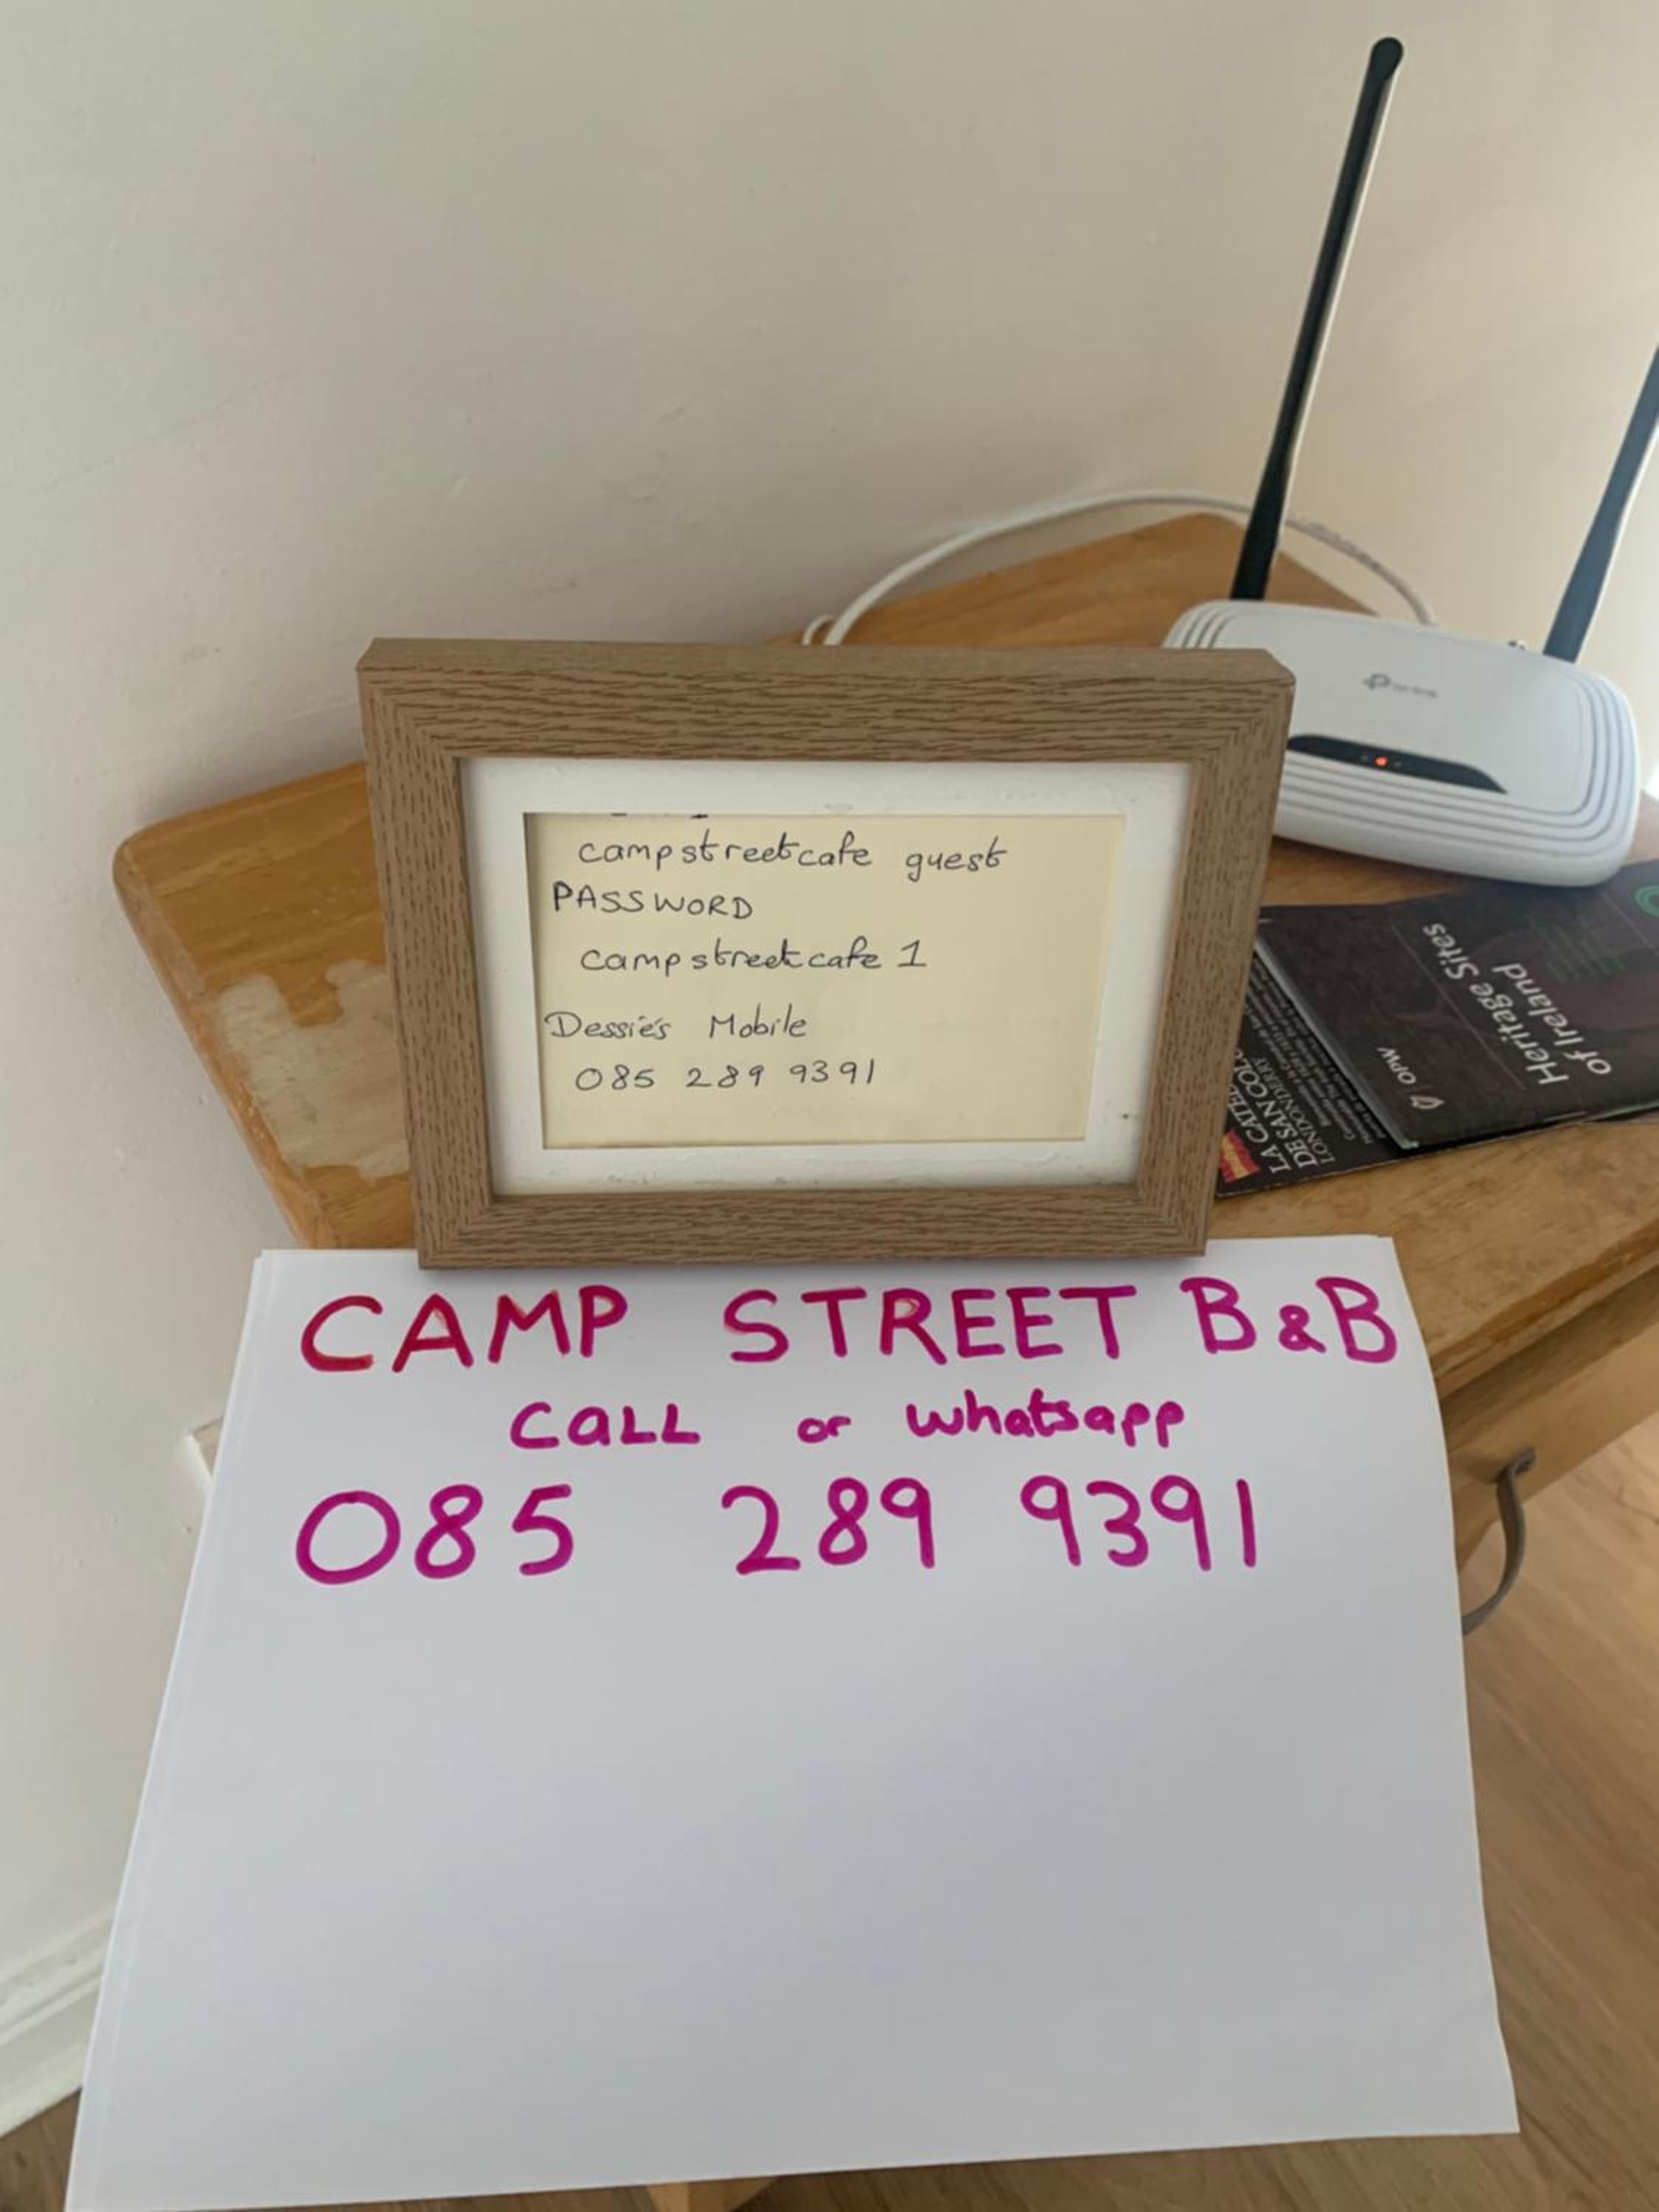 campstreetcafe guest
PASSWORD
campstreetcafe 1
Dessie's Mobile
085 289 9391
CAMP STREET B&B
CALL or whatsapp
085 289 9391
tp-link
Heritage Sites
of Ireland
OPW
LONDONDERRY